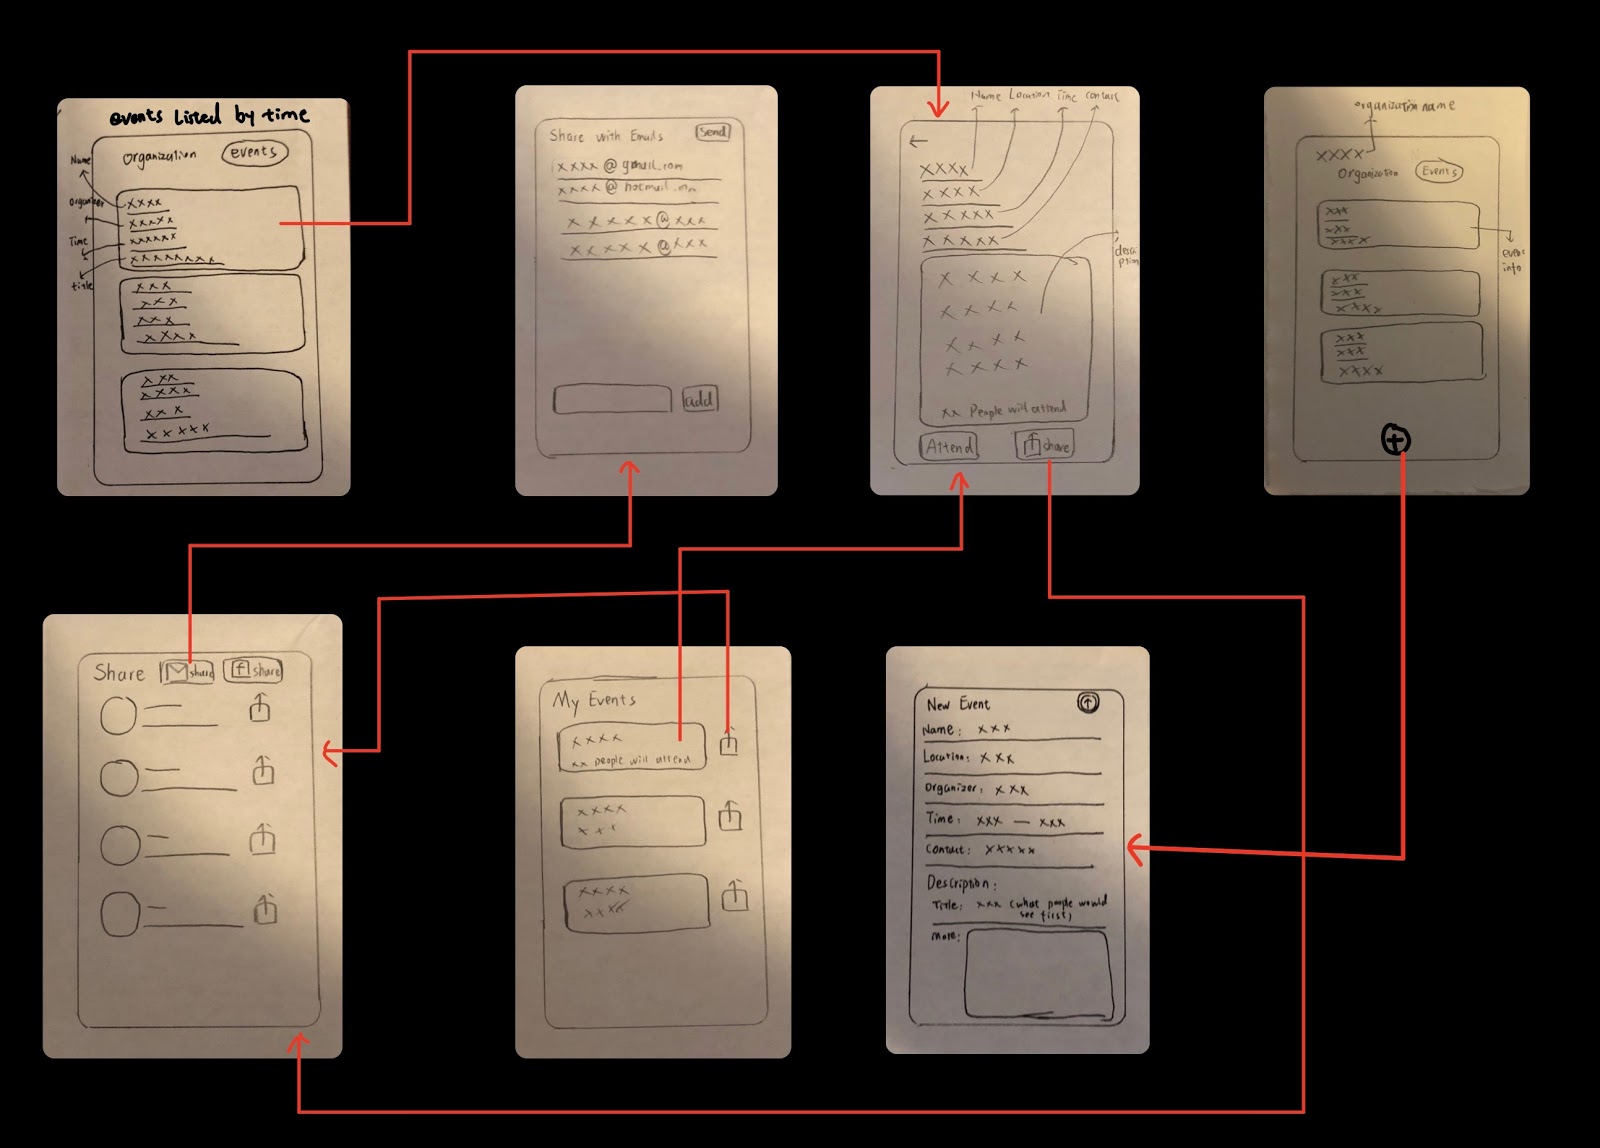 events Listed by time
Organization events
Name
xxxx
Organizer
xxxxx
Time
xxxxxx
title
xxxxxxxxx
xxx
xxx
xxx
xxxx
xxx
xxxx
xxx
xxxxx
Share with Emails Send
xxxx@gmail.com
xxxx@hotmail.com
xxxxx@xxx
xxxxx@xxx
add
Name Location Time contact
xxxx
xxxx
xxxxx
xxxxx
description
x x x x
x x x x
x x x x
x x x x
xx People will attend
Attend share
organization name
xxxx
Organization Events
xxx
xxx
xxxx
event info
xxx
xxx
xxxx
xxx
xxx
xxxx
Share share f share
My Events
xxxx
xx people will attend
xxxx
xxx
xxxx
xxxx
New Event
Name: xxx
Location: xxx
Organizer: xxx
Time: xxx — xxx
Contact: xxxxx
Description:
Title: xxx (what people would
see first)
More: